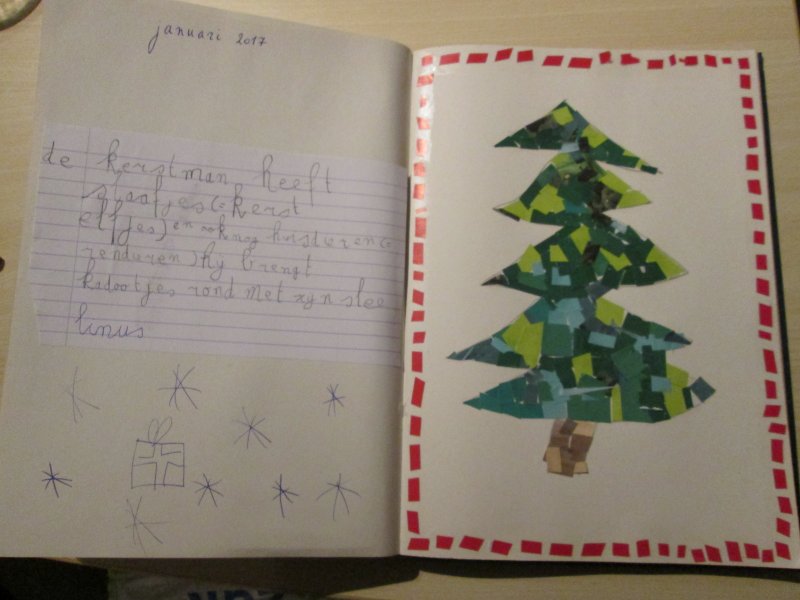 januari 2017
de kerstman heeft
slaafjes (= kerst
elfjes) en ook nog husduren (=
renduren) hij brengt
kadootjes rond met zijn slee
linus